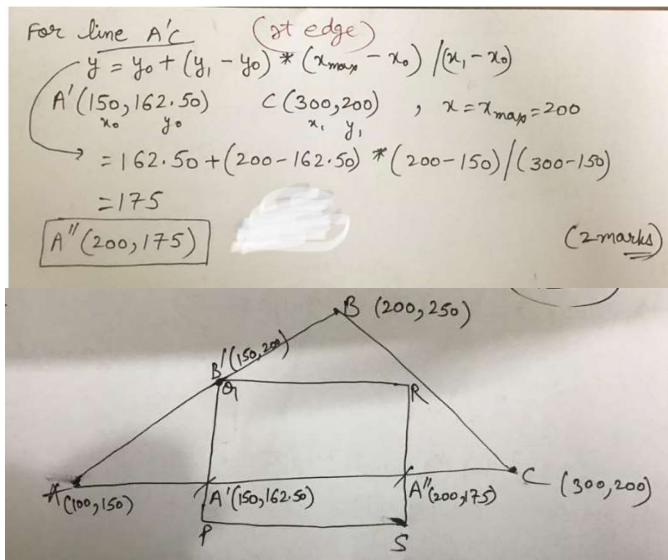 For line A'C (rt edge)
y = y0 + (y1 - y0) * (xmax - x0) / (x1 - x0)
A'(150, 162.50) C(300, 200) , x = xmax = 200
x0 y0 x1 y1
= 162.50 + (200 - 162.50) * (200 - 150) / (300 - 150)
= 175
A''(200, 175) (2 marks)
B (200, 250)
B'(150, 200)
Q R
A (100, 150) A'(150, 162.50) A''(200, 175) C (300, 200)
P S